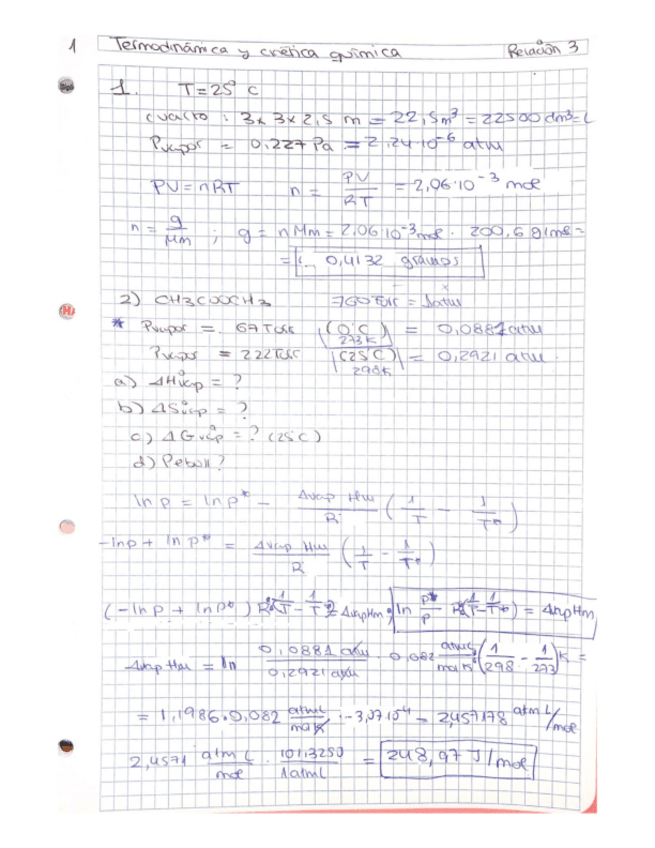 1 Termodinámica y cinética química Relación 3
1. T=25° C
cuarto : 3x3x2,5 m = 22,5m³ = 22500 dm³=L
Pvapor = 0,227 Pa = 2,24·10⁻⁶ atm
PV=nRT n = PV/RT = 2,06·10⁻³ mol
n = g/Mm ; g = n Mm = 2,06·10⁻³ mol · 200,6 g/mol =
= 0,4132 gramos
2) CH3COOCH3 760 Torr = 1atm
* Pvapor = 67 Torr (0°C) 273K = 0,0881 atm
Pvapor = 222 Torr (25°C) 298K = 0,2921 atm
a) ΔH°vap = ?
b) ΔS°vap = ?
c) ΔG°vap = ? (25°C)
d) Pebull?
ln p = ln p* - Δvap Hm/R (1/T - 1/T*)
-lnp + ln p* = Δvap Hm/R (1/T - 1/T*)
(-ln p + ln p*) R(1/T - 1/T*) = ΔvapHm; ln p*/p R(1/T - 1/T*) = ΔvapHm
Δvap Hm = ln 0,0881 atm/0,2921 atm · 0,082 atm L/mol K (1/298 - 1/273)K =
= 1,1986·0,082 atm L/mol K · -3,07·10⁻⁴ = 2,457178 atm L/mol
2,4571 atm L/mol · 101,3250/1atmL = 248,97 J/mol